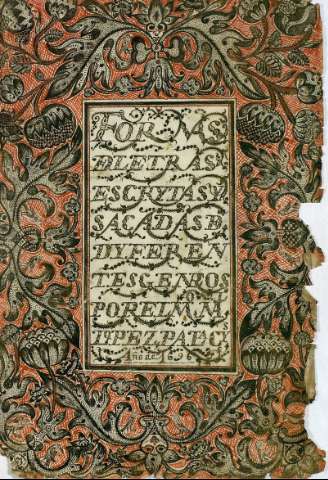 FORMAS
DLETRAS
ESCRYTASYI
SACADAS D
DYFEREN
TES GENROS
POR EL M
Año de 1696